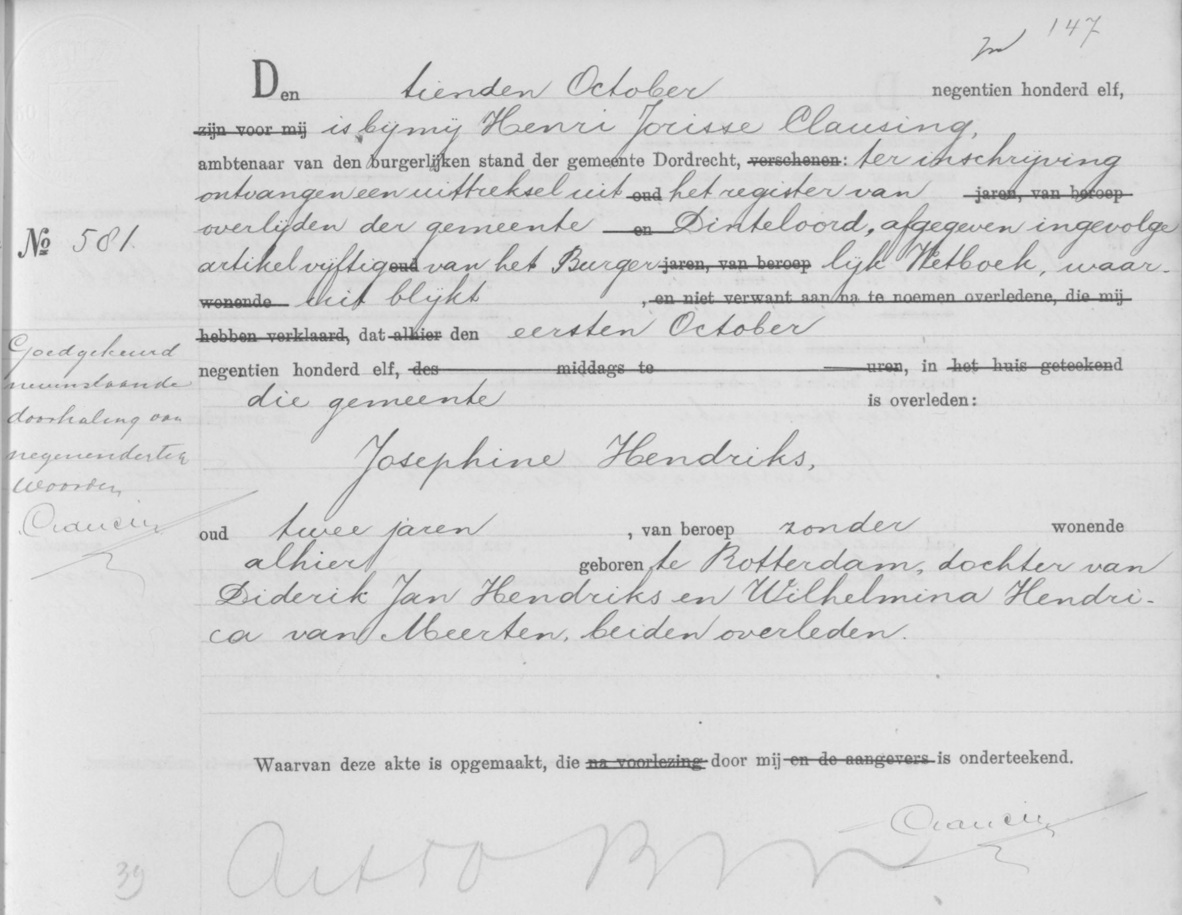 147
Den tienden October negentien honderd elf,
zijn voor mij is by mij Henri Jorisse Clausing,
ambtenaar van den burgerlijken stand der gemeente Dordrecht, verschenen: ter inschrijving
ontvangen een uittreksel uit oud het register van jaren, van beroep
overlijden der gemeente en Dinteloord, afgegeven ingevolge
№ 581
artikel vijftig oud van het Burger jaren, van beroep lijk Wetboek, waar-
wonende uit blijkt , en niet verwant aan na te noemen overledene, die mij
hebben verklaard, dat alhier den eersten October
negentien honderd elf, des middags te uren, in het huis geteekend
die gemeente is overleden:
Goedgekeurd
nevenstaande
doorhaling van
negenendertig
woorden
Josephine Hendriks,
oud twee jaren , van beroep zonder wonende
alhier geboren te Rotterdam, dochter van
Diderik Jan Hendriks en Wilhelmina Hendri-
ca van Meerten, beiden overleden.
Waarvan deze akte is opgemaakt, die na voorlezing door mij en de aangevers is onderteekend.
39
Art 50 BW